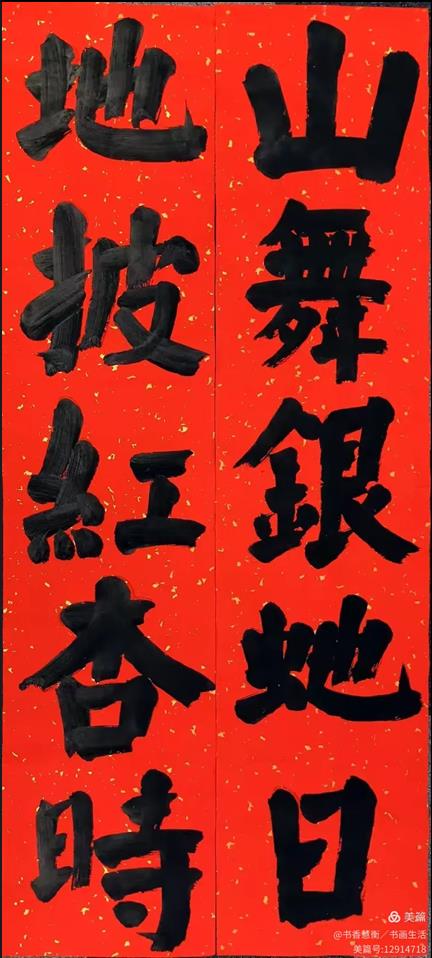 山舞銀虵日
地披紅杏時
美篇
@书香慧衡／书画生活
美篇号:12914718